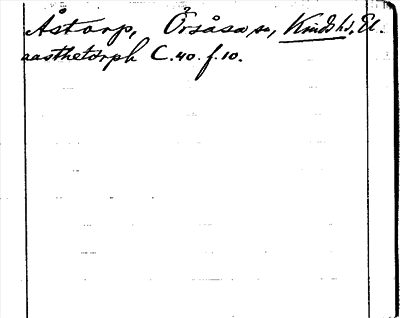 Åstorp, Örsåsa sn, Kinds hd, El.
aasthetorph C.40. f.10.